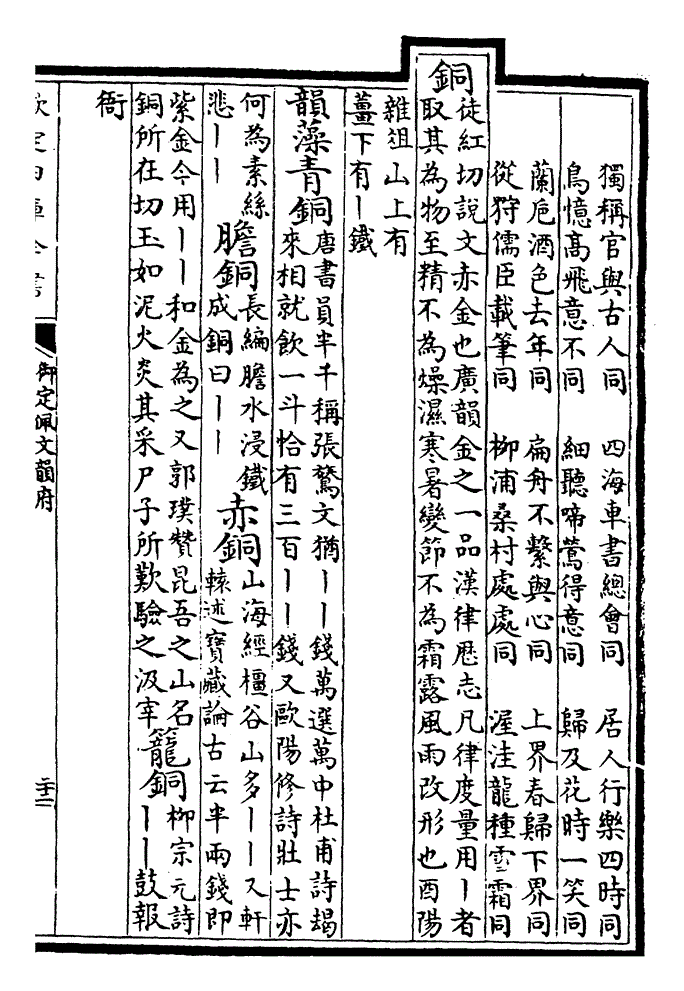 獨稱官與古人同　四海車書總會同　居人行樂四時同
鳥憶高飛意不同　細聽啼鶯得意同　歸及花時一笑同
蘭巵酒色去年同　扁舟不繫與心同　上界春歸下界同
從狩儒臣載筆同　柳浦桑村處處同　渥洼龍種雪霜同
銅
徒紅切說文赤金也廣韻金之一品漢律厯志凡律度量用丨者
取其為物至精不為燥濕寒暑變節不為霜露風雨改形也酉陽
雜俎山上有
薑下有丨鐵
韻藻青銅
唐書員半千稱張鷟文猶丨丨錢萬選萬中杜甫詩蝎
來相就飲一斗恰有三百丨丨錢又歐陽修詩壯士亦
何為素絲
悲丨丨
膽銅
長編膽水浸鐵
成銅曰丨丨
赤銅
山海經橿谷山多丨丨又軒
轅述寶藏論古云半兩錢即
紫金今用丨丨和金為之又郭璞贊昆吾之山名
銅所在切玉如泥火炎其采尸子所歎驗之汲宰
籠銅
柳宗元詩
丨丨鼓報
衙
欽定四庫全書
御定佩文韻府
二十二